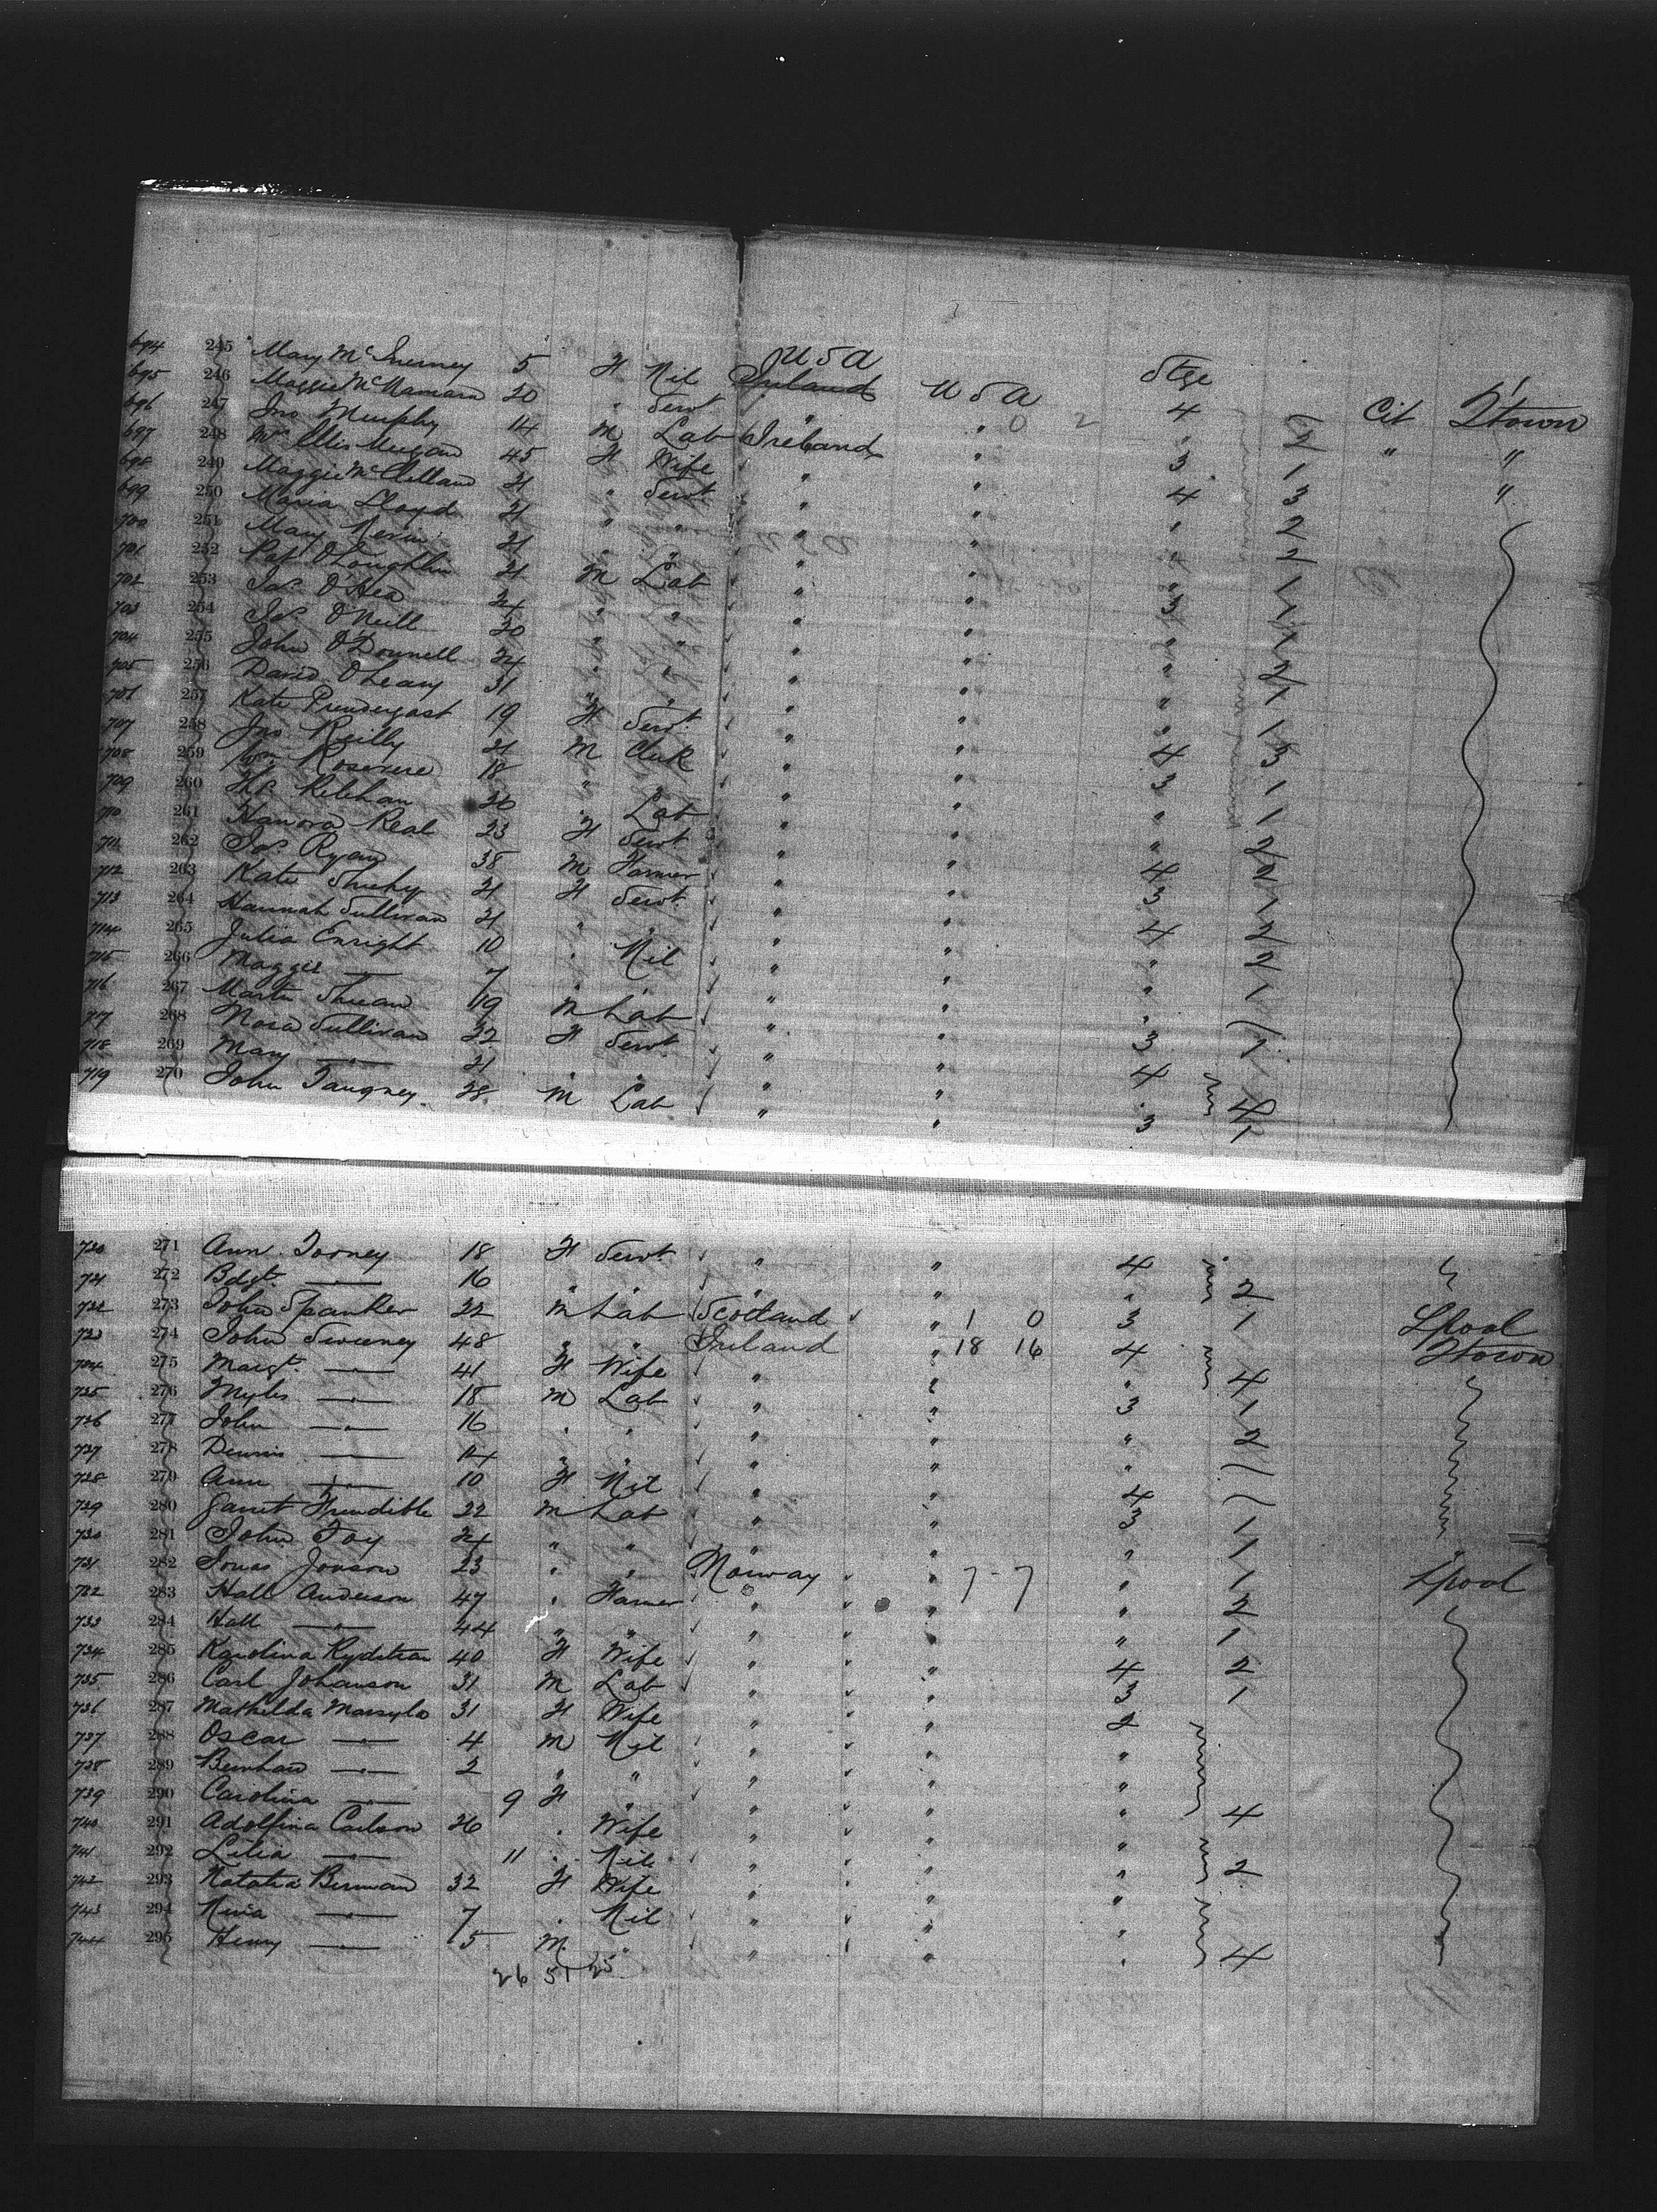 694 245 Mary McInerney 5 F Nil U S A U S A Stge
695 246 Maggie McNamara 20 " Servt " " 4 Cit Qtown
696 247 Jno Murphy 14 M Lab Ireland " " 2 " "
697 248 Mrs Ellis Meegan 45 F Wife " " 3 1 "
698 249 Maggie McClelland 21 " Servt " " 4 3
699 250 Maria Lloyd 21 " " " " " 2
700 251 Mary Nevin 21 " " " " " 2
701 252 Pat O'Loughlin 21 M Lab " " " 1
702 253 Jas O'Hea 24 " " " " 3 1
703 254 Js O'Neill 20 " " " " " 1
704 255 John O'Donnell 24 " " " " " 2
705 256 David O'Leary 31 " " " " " 1
706 257 Kate Prendergast 19 F Servt " " " 1
707 258 Jno Reilly 21 M Clerk " " 4 3
708 259 Wm Rosevere 18 " " " " 3 1
709 260 Ths Relehan 20 " Lab " " " 1
710 261 Hanora Real 23 F Servt " " " 2
711 262 Jas Ryan 38 M Farmer " " 4 2
712 263 Kate Sheehy 21 F Servt " " 3 1
713 264 Hannah Sullivan 21 " " " " 4 2
714 265 Julia Enright 10 " Nil " " " 2
715 266 Maggie — " — 7 " " " " " 1
716 267 Martin 19 M Lab " " "
717 268 Nora Sullivan 22 F Servt " " 3 1
718 269 Mary — " — 21 " " " " 4
719 270 John Tangney 28 M Lab " " " 4
3 1
720 271 Ann Torney 18 F Servt " " 4
721 272 Bdgt — " — 16 " " " " " 2
722 273 John Spanker 22 M Lab Scotland " 1 0 3 1 Lpool
723 274 John Sweeney 48 " " Ireland " 18 16 4 Qtown
724 275 Margt — " — 41 F Wife " " " 4
725 276 Myles — " — 18 M Lab " " 3 1
726 277 John — " — 16 " " " " " 2
727 278 Dennis — " — 14 " " " " "
728 279 Ann — " — 10 F Nil " " 4
729 280 Garret 22 M Lab " " 3 1
730 281 John Foy 24 " " " " " 1
731 282 Jonas Jonson 23 " " Norway " 7 - 7 " 1 Lpool
732 283 Hall Anderson 47 " Farmer " " " 2
733 284 Hall — " — 44 " " " " " 1
734 285 Karolina 40 F Wife " " 4 2
735 286 Carl Johanson 31 M Lab " " 3 1
736 287 Mathilda 31 F Wife " " 2
737 288 Oscar — " — 4 M Nil " " "
738 289 — " — 2 " " " " "
739 290 Carolina — " — 9 F " " " " 4
740 291 Adolfina Carlson 26 " Wife " " "
741 292 Lilia — " — 11 " Nil " " " 2
742 293 Natalia Berman 32 F Wife " " "
743 294 — " — 7 " Nil " " "
744 295 Henry — " — 5 M " " " " 4
26 51 25